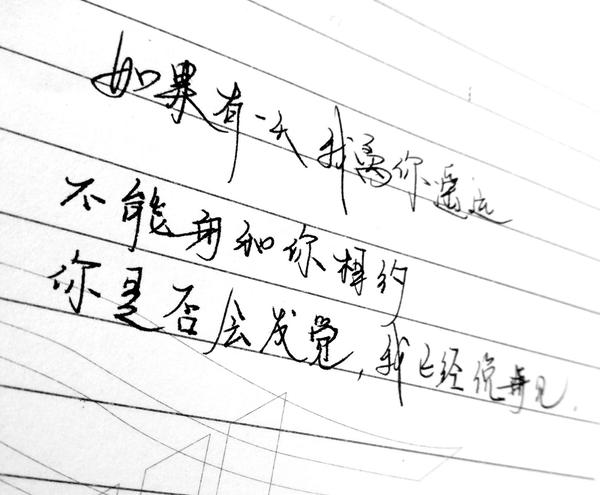 如果有一天 我离你遥远
不能再和你相约
你是否会发觉，我已经说再见.